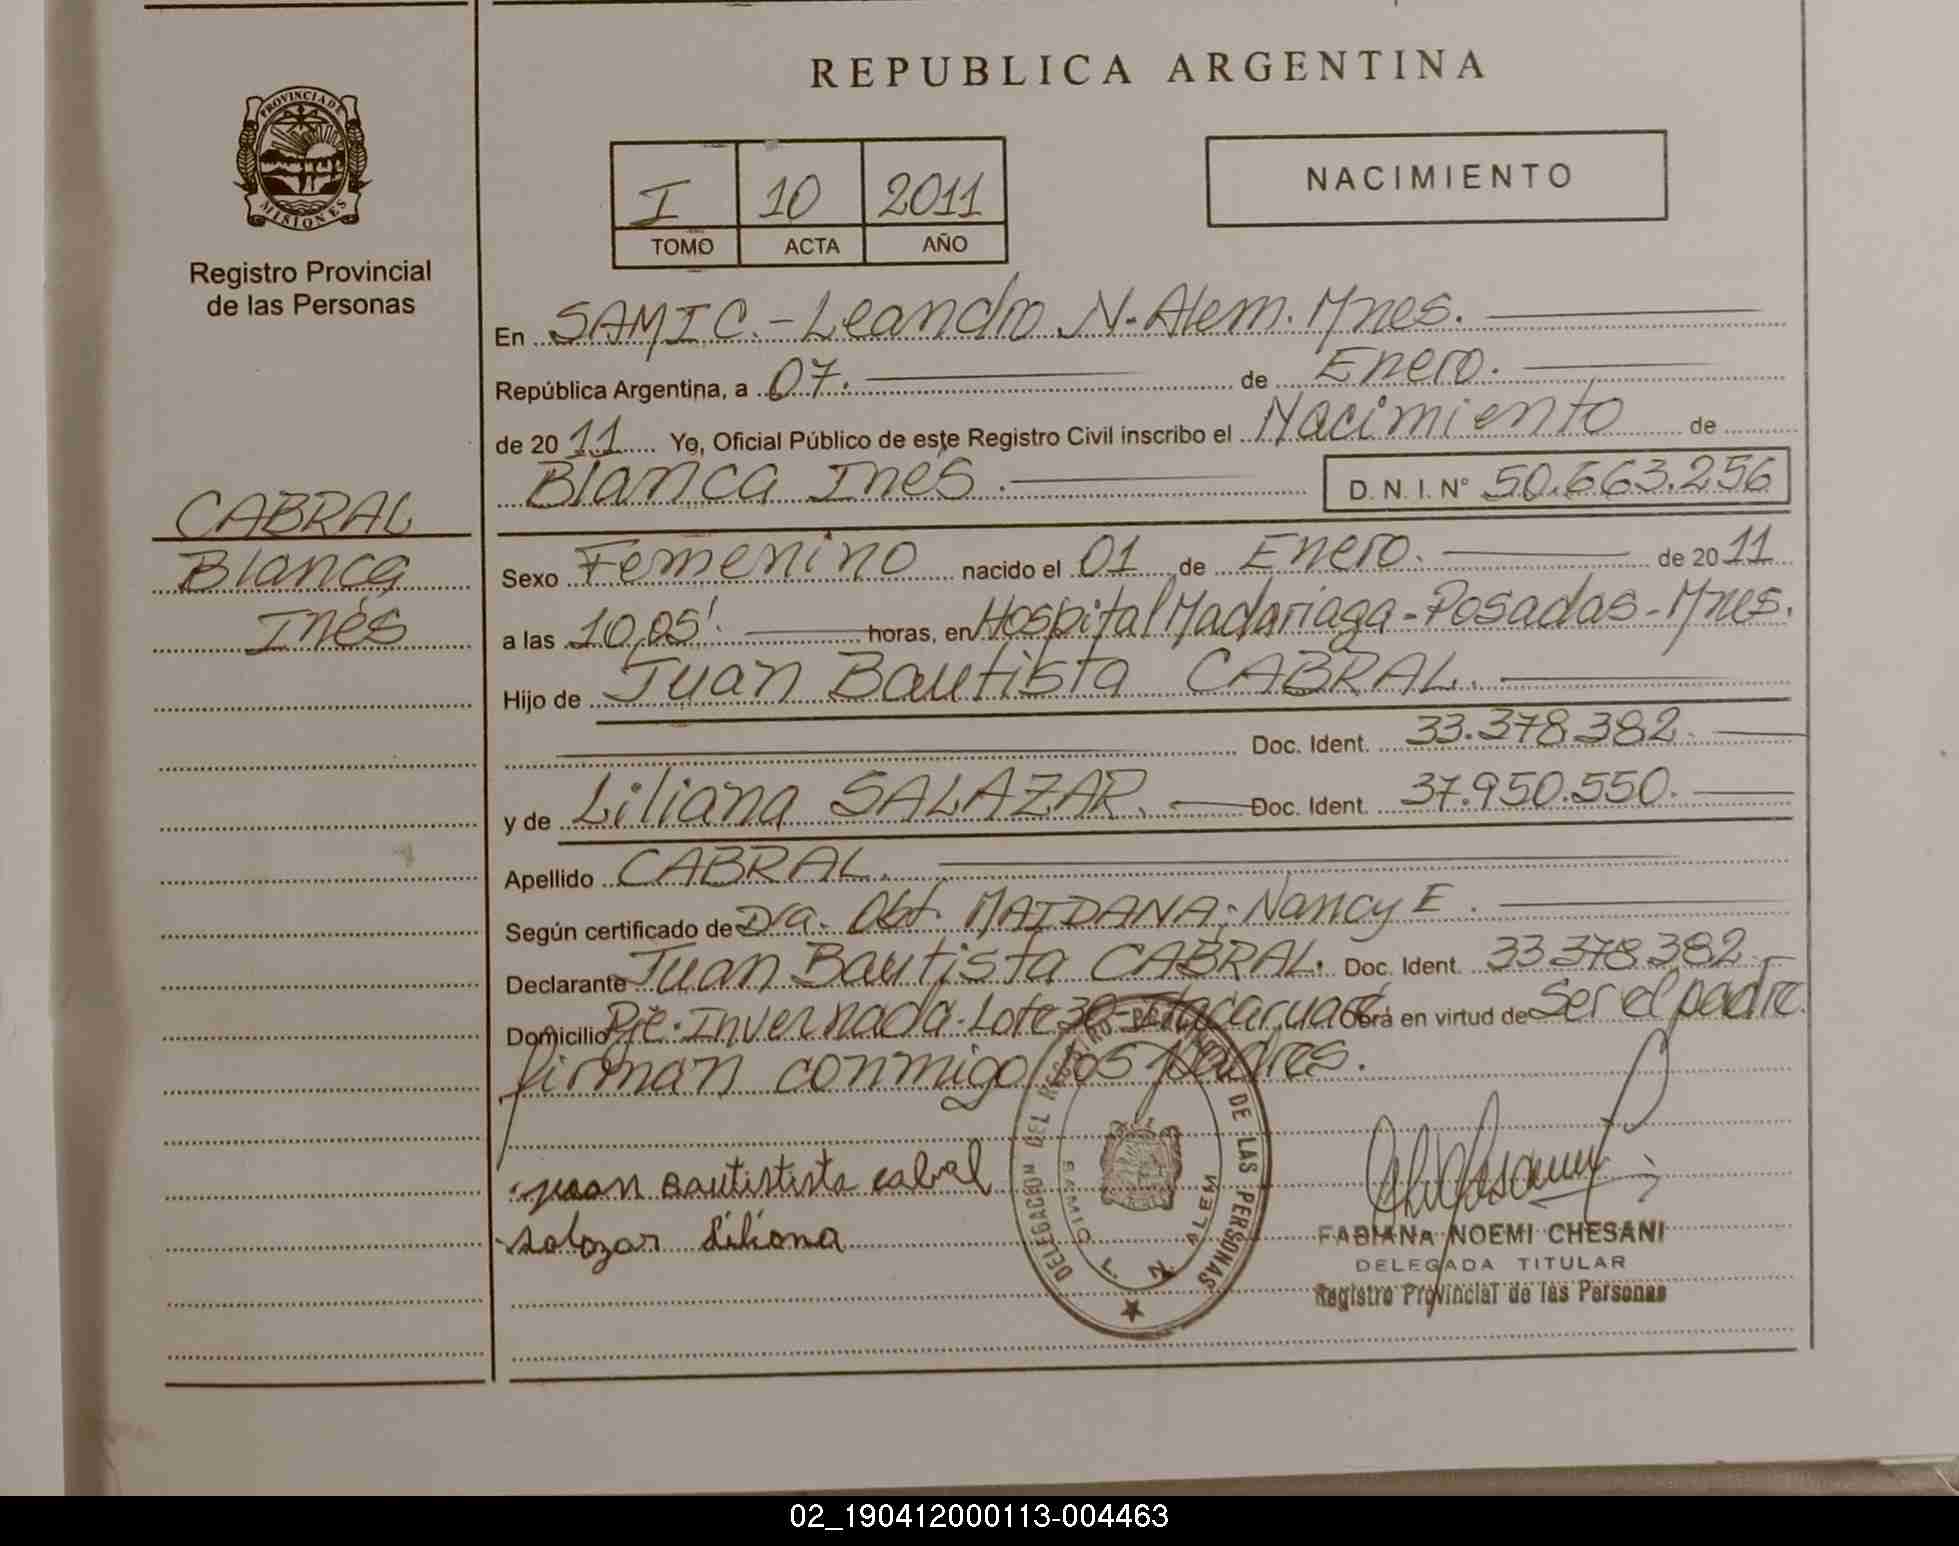 REPUBLICA ARGENTINA
PROVINCIA DE MISIONES
Registro Provincial
de las Personas
I 10 2011
TOMO ACTA AÑO
NACIMIENTO
En SAMIC.-Leandro N. Alem. Mnes.
República Argentina, a 07. de Enero.
de 2011 Yo, Oficial Público de este Registro Civil inscribo el Nacimiento de
Blanca Inés. D.N.I.N° 50.663.256
CABRAL
Blanca
Inés
Sexo Femenino nacido el 01 de Enero. de 2011
a las 10,05'. horas, en Hospital Madariaga-Posadas-Mnes.
Hijo de Juan Bautista CABRAL.
Doc. Ident. 33.378.382.
y de Liliana SALAZAR. Doc. Ident. 37.950.550.
Apellido CABRAL.
Según certificado de Dra. Obt. MAIDANA, Nancy E.
Declarante Juan Bautista CABRAL. Doc. Ident. 33.378.382.
Domicilio Pje. Invernada-Lote 30-Itacaruaré Obra en virtud de Ser el padre.
firman conmigo los Padres.
juan Bautistista cabral
salazar liliana
DELEGACION DEL REGISTRO DE LAS PERSONAS
SAMIC L. N. ALEM
FABIANA NOEMI CHESANI
DELEGADA TITULAR
Registro Provincial de las Personas
02_190412000113-004463